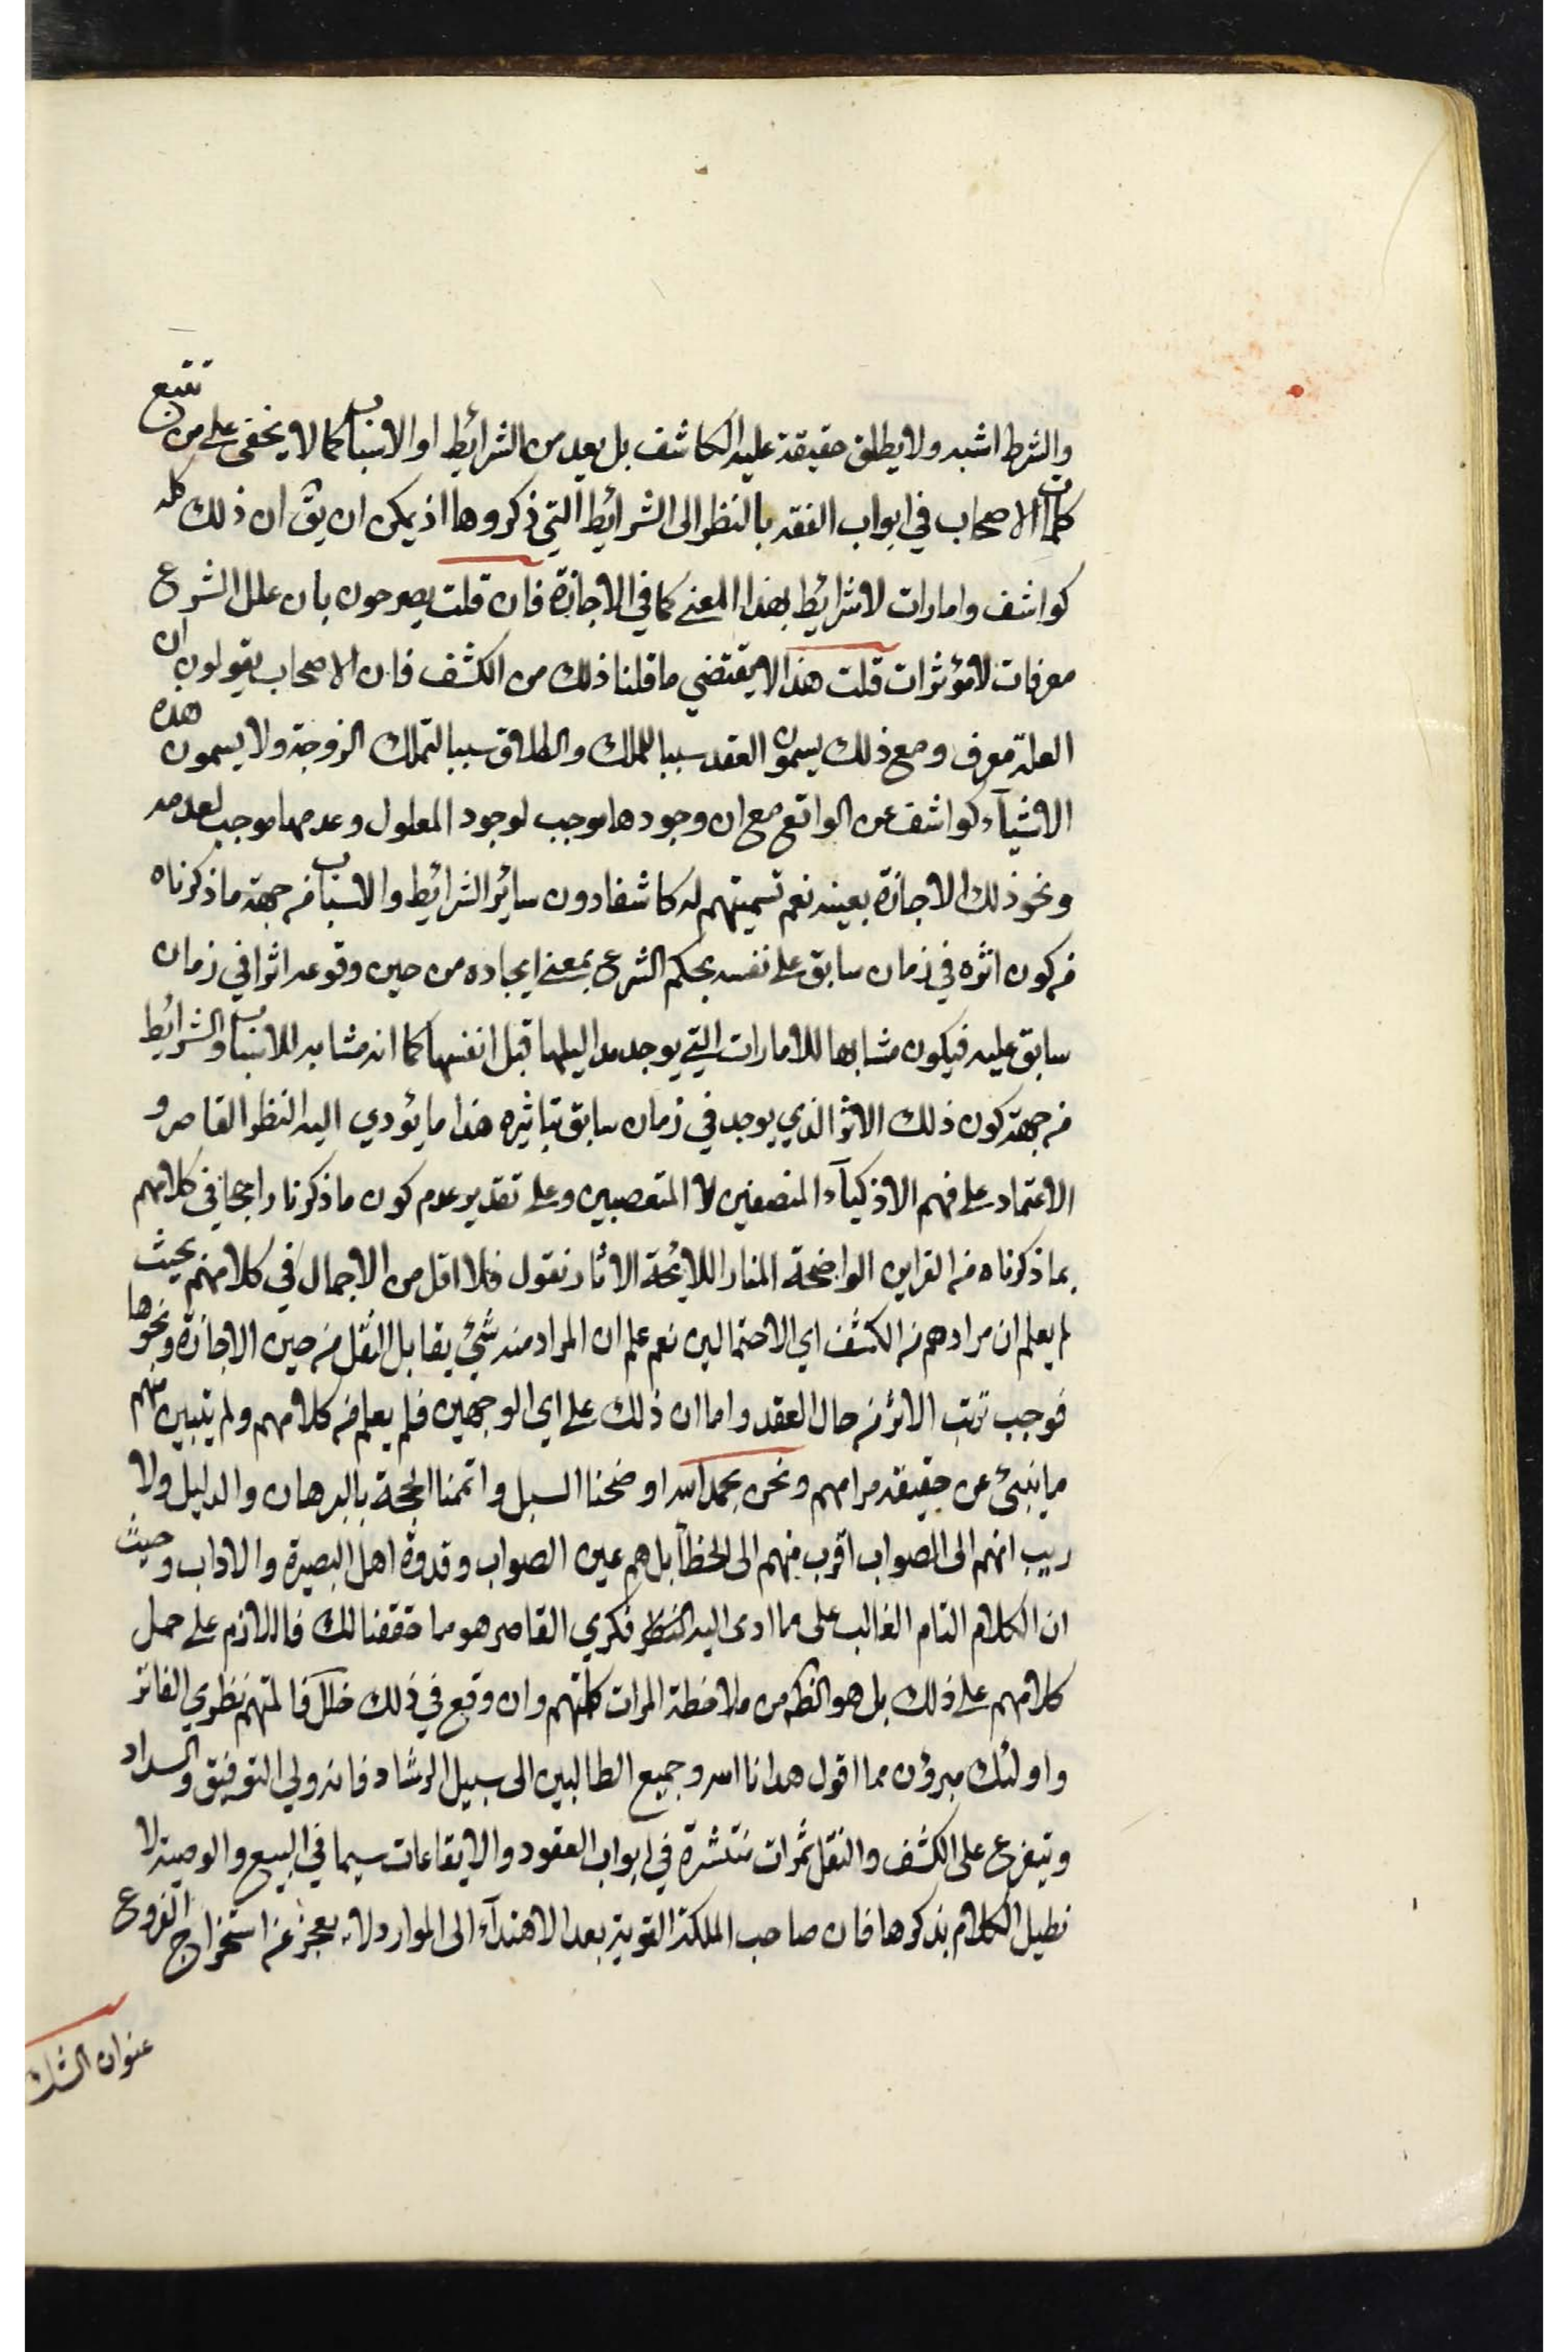 والشرط اشبه ولا يطلق حقيقة عليه الكاشف بل يعد من الشرائط او الاسباب كما لا يخفى على من تتبع
كلمات الاصحاب في ابواب الفقه بالنظر الى الشرائط التي ذكروها اذ يمكن ان يق ان ذلك كله
كواشف وامارات لا شرائط بهذا المعنى كما في الاجازة فان قلت يصرحون بان علل الشرع
معرفات لا مؤثرات قلت هذا لا يقتضي ما قلنا ذلك من الكشف فان الاصحاب يقولون ان
العلة معرف ومع ذلك يسمون العقد سببا للملك والطلاق سببا لتملك الزوجة ولا يسمون هذه
الاشيآء كواشف عن الواقع مع ان وجودها موجب لوجود المعلول وعدمها موجب لعدمه
ونحو ذلك الاجازة بعينه نعم تسميتهم له كاشفا دون سائر الشرائط والاسباب من جهة ما ذكرناه
من كون اثره في زمان سابق على نفسه بحكم الشرع بمعنى ايجاده من حين وقوعه اثرا في زمان
سابق عليه فيكون مشابها للامارات التي يوجد مداليلها قبل انفسها كما انه مشابه للاسباب والشرائط
من جهة كون ذلك الاثر الذي يوجد في زمان سابق بتاثيره هذا ما يؤدي اليه النظر القاصر و
الاعتماد على فهم الاذكيآء المنصفين لا المتعصبين وعلى تقدير عدم كون ما ذكرنا راجحا في كلامهم
بما ذكرناه من القراين الواضحة المنار اللائحة الاثار نقول فلا اقل من الاجمال في كلامهم بحيث
لم يعلم ان مرادهم من الكشف اي الاحتمالين نعم علم ان المراد منه شيء يقابل النقل من حين الاجازة ونحوها
فوجب ترتب الاثر من حال العقد واما ان ذلك على اي الوجهين فلم يعلم من كلامهم ولم يتبين منهم
ما ينبئ عن حقيقة مرامهم ونحن بحمد الله اوضحنا السبل واتممنا الحجة بالبرهان والدليل ولا
ريب انهم الى الصواب اقرب منهم الى الخطآ بل هم عين الصواب وقدوة اهل البصيرة والاداب وحيث
ان الكلام التام الغالب على ما ادى اليه النظر فكري القاصر هو ما حققنا لك فاللازم على حمل
كلامهم على ذلك بل هو الظه من ملاحظة المرات كلتهم وان وقع في ذلك خلل فالمتهم نظري الفاتر
واولئك مبرؤن مما اقول هدانا الله وجميع الطالبين الى سبيل الرشاد فانه ولي التوفيق والسداد
ويتفرع على الكشف والنقل ثمرات منتشرة في ابواب العقود والايقاعات سيما في البيع والوصية لا
نطيل الكلام بذكرها فان صاحب الملكة القوية بعد الاهتدآء الى الموارد لا يعجز عن استخراج الفروع
عنوان الشك